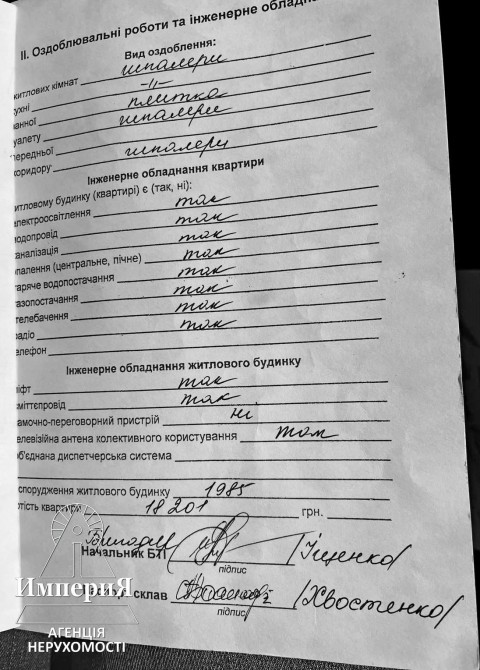 ІІ. Оздоблювальні роботи та інженерне обладна
Вид оздоблення:
житлових кімнат шпалери
кухні -||-
ванної плитка
туалету шпалери
передньої
коридору шпалери
Інженерне обладнання квартири
житловому будинку (квартирі) є (так, ні):
електроосвітлення так
водопровід так
каналізація так
опалення (центральне, пічне) так
гаряче водопостачання так
газопостачання так
телебачення так
радіо так
телефон
Інженерне обладнання житлового будинку
ліфт так
сміттєпровід так
замочно-переговорний пристрій ні
телевізійна антена колективного користування так
об'єднана диспетчерська система
спорудження житлового будинку 1985
вартість квартири 18 201 грн.
Начальник БТІ /Іщенко/
підпис
склав /Хвостенко/
підпис
ИмпериЯ
АГЕНЦІЯ
НЕРУХОМОСТІ